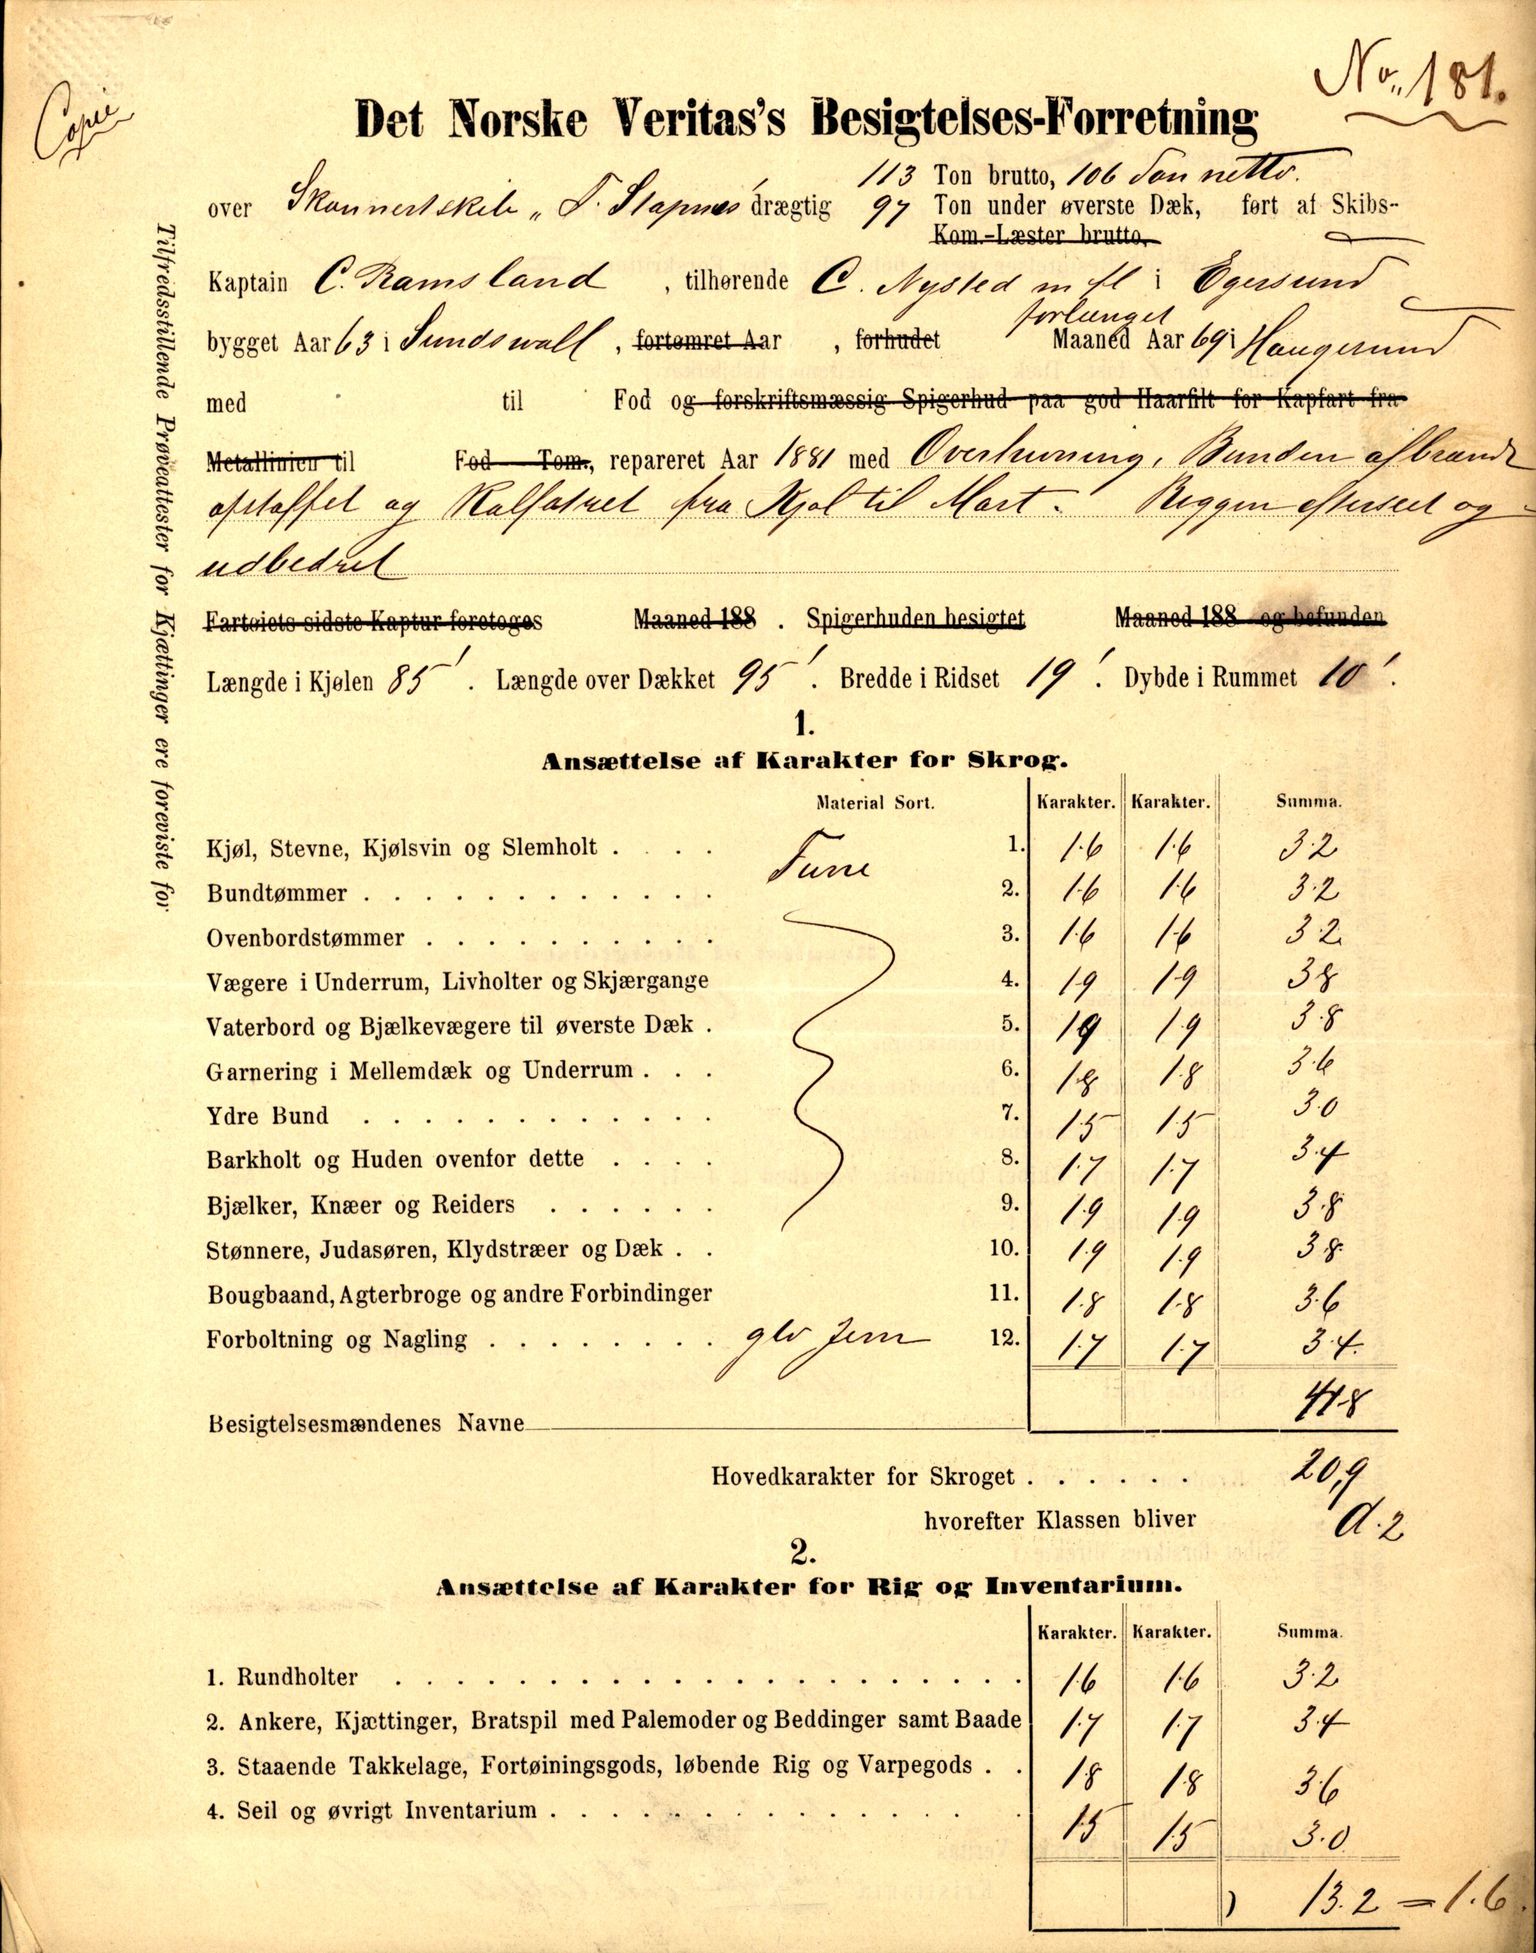 No. 181.
Copie
Det Norske Veritas's Besigtelses-Forretning
113 Ton brutto, 106 Ton netto.
over Skonnertskib „ T. Stapnes" drægtig 97 Ton under øverste Dæk, ført af Skibs-
Kom.-Læster brutto,
Kaptain C. Ramsland, tilhørende C. Nysted m fl i Egersund
forlænget
bygget Aar 63 i Sundswall, fortømret Aar , forhudet Maaned Aar 69 i Haugesund
med til Fod og forskriftsmæssig Spigerhud paa god Haarfilt for Kapfart fra
Metallinien til Fod Tom., repareret Aar 1881 med Overhuning, Bunden afbrændt
og Kalfatret fra Kjøl til Mart. Riggen efterseet og
udbedret
Fartøiets sidste Kaptur foretoges Maaned 188 . Spigerhuden besigtet Maaned 188 og befunden
Længde i Kjølen 85'. Længde over Dækket 95'. Bredde i Ridset 19'. Dybde i Rummet 10'.
1.
Ansættelse af Karakter for Skrog.
Material Sort. Karakter. Karakter. Summa.
Kjøl, Stevne, Kjølsvin og Slemholt . . . . Furu 1. 1.6 1.6 3.2
Bundtømmer . . . . . . . . . . . . 2. 1.6 1.6 3.2
Ovenbordstømmer . . . . . . . . . . 3. 1.6 1.6 3.2
Vægere i Underrum, Livholter og Skjærgange 4. 1.9 1.9 3.8
Vaterbord og Bjælkevægere til øverste Dæk . 5. 1.9 1.9 3.8
Garnering i Mellemdæk og Underrum . . . 6. 1.8 1.8 3.6
Ydre Bund . . . . . . . . . . . . 7. 1.5 1.5 3.0
Barkholt og Huden ovenfor dette . . . . 8. 1.7 1.7 3.4
Bjælker, Knæer og Reiders . . . . . . 9. 1.9 1.9 3.8
Stønnere, Judasøren, Klydstræer og Dæk . . 10. 1.9 1.9 3.8
Bougbaand, Agterbroge og andre Forbindinger 11. 1.8 1.8 3.6
Forboltning og Nagling . . . . . . . . glv Jern 12. 1.7 1.7 3.4
41.8
Besigtelsesmændenes Navne
Hovedkarakter for Skroget . . . . . . 20,9
hvorefter Klassen bliver A.2
2.
Ansættelse af Karakter for Rig og Inventarium.
Karakter. Karakter. Summa.
1. Rundholter . . . . . . . . . . . . . . . . . . . . 1.6 1.6 3.2
2. Ankere, Kjættinger, Bratspil med Palemoder og Beddinger samt Baade 1.7 1.7 3.4
3. Staaende Takkelage, Fortøiningsgods, løbende Rig og Varpegods . . 1.8 1.8 3.6
4. Seil og øvrigt Inventarium . . . . . . . . . . . . . . 1.5 1.5 3.0
13.2 = 1.6.
Tilfredsstillende Prøveattester for Kjættinger ere foreviste for